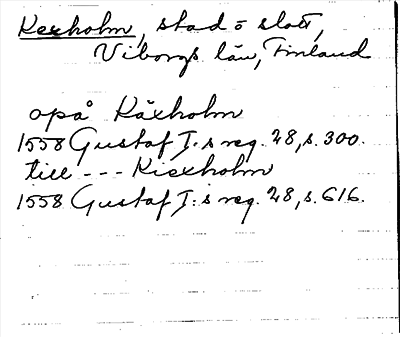 Kexholm, stad o slott,
Viborgs län, Finland
opå Käxholm
1558 Gustaf I:s reg. 28, s. 300.
till --- Kiexholm
1558 Gustaf I:s reg. 28, s. 616.